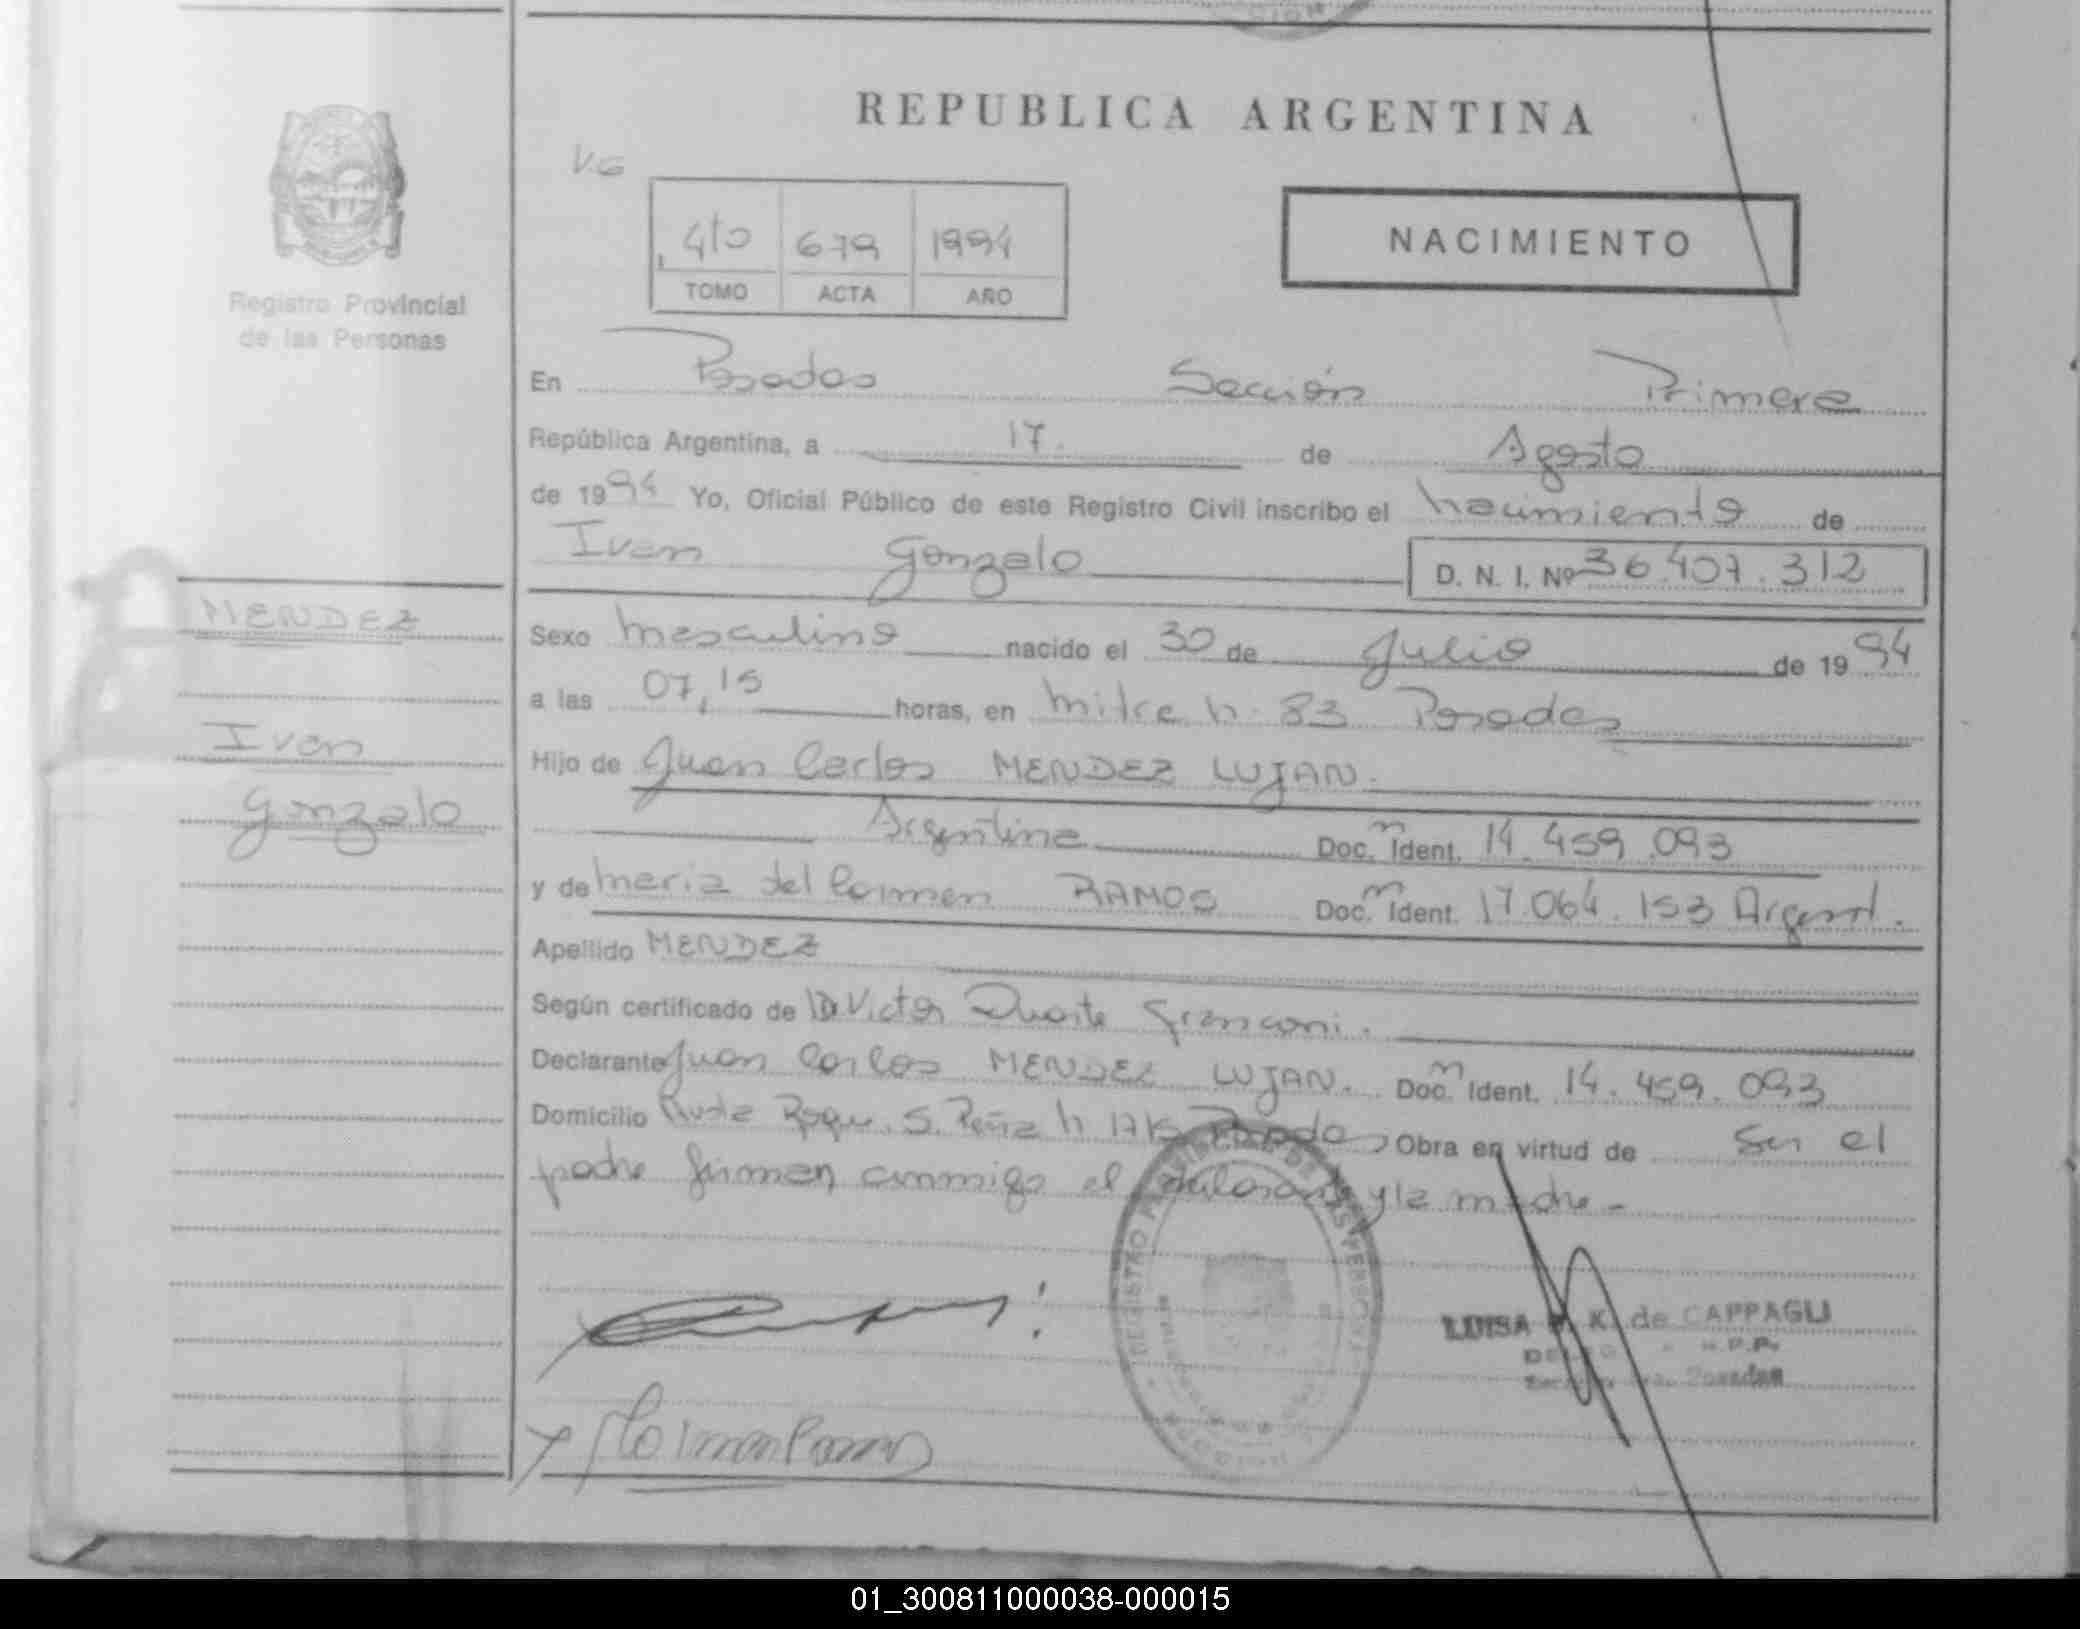 REPUBLICA ARGENTINA
V.G
4to 679 1994
TOMO ACTA AÑO
NACIMIENTO
Registro Provincial
de las Personas
En Posadas Sección Primera
República Argentina, a 17. de Agosto
de 1994 Yo, Oficial Público de este Registro Civil inscribo el nacimiento de
Ivan Gonzalo D. N. I. Nº 36.407.312
MENDEZ
Ivan
Gonzalo
Sexo masculino nacido el 30 de Julio de 1994
a las 07,15 horas, en mitre n. 83 Posadas
Hijo de Juan Carlos MENDEZ LUJAN.
Argentina Doc. m Ident. 14.459.093
y de maria del Carmen RAMOS Doc. m Ident. 17.064.153 Argent.
Apellido MENDEZ
Según certificado de Dr Victor Duarte
Declarante Juan Carlos MENDEZ LUJAN. Doc. m Ident. 14.459.093
Domicilio Roque S. Peña n Posadas Obra en virtud de ser el
padre firman conmigo el y la madre -
REGISTRO PROVINCIAL DE LAS PERSONAS
LUISA K. de CAPPAGLI
R.P.P.
Posadas
01_300811000038-000015